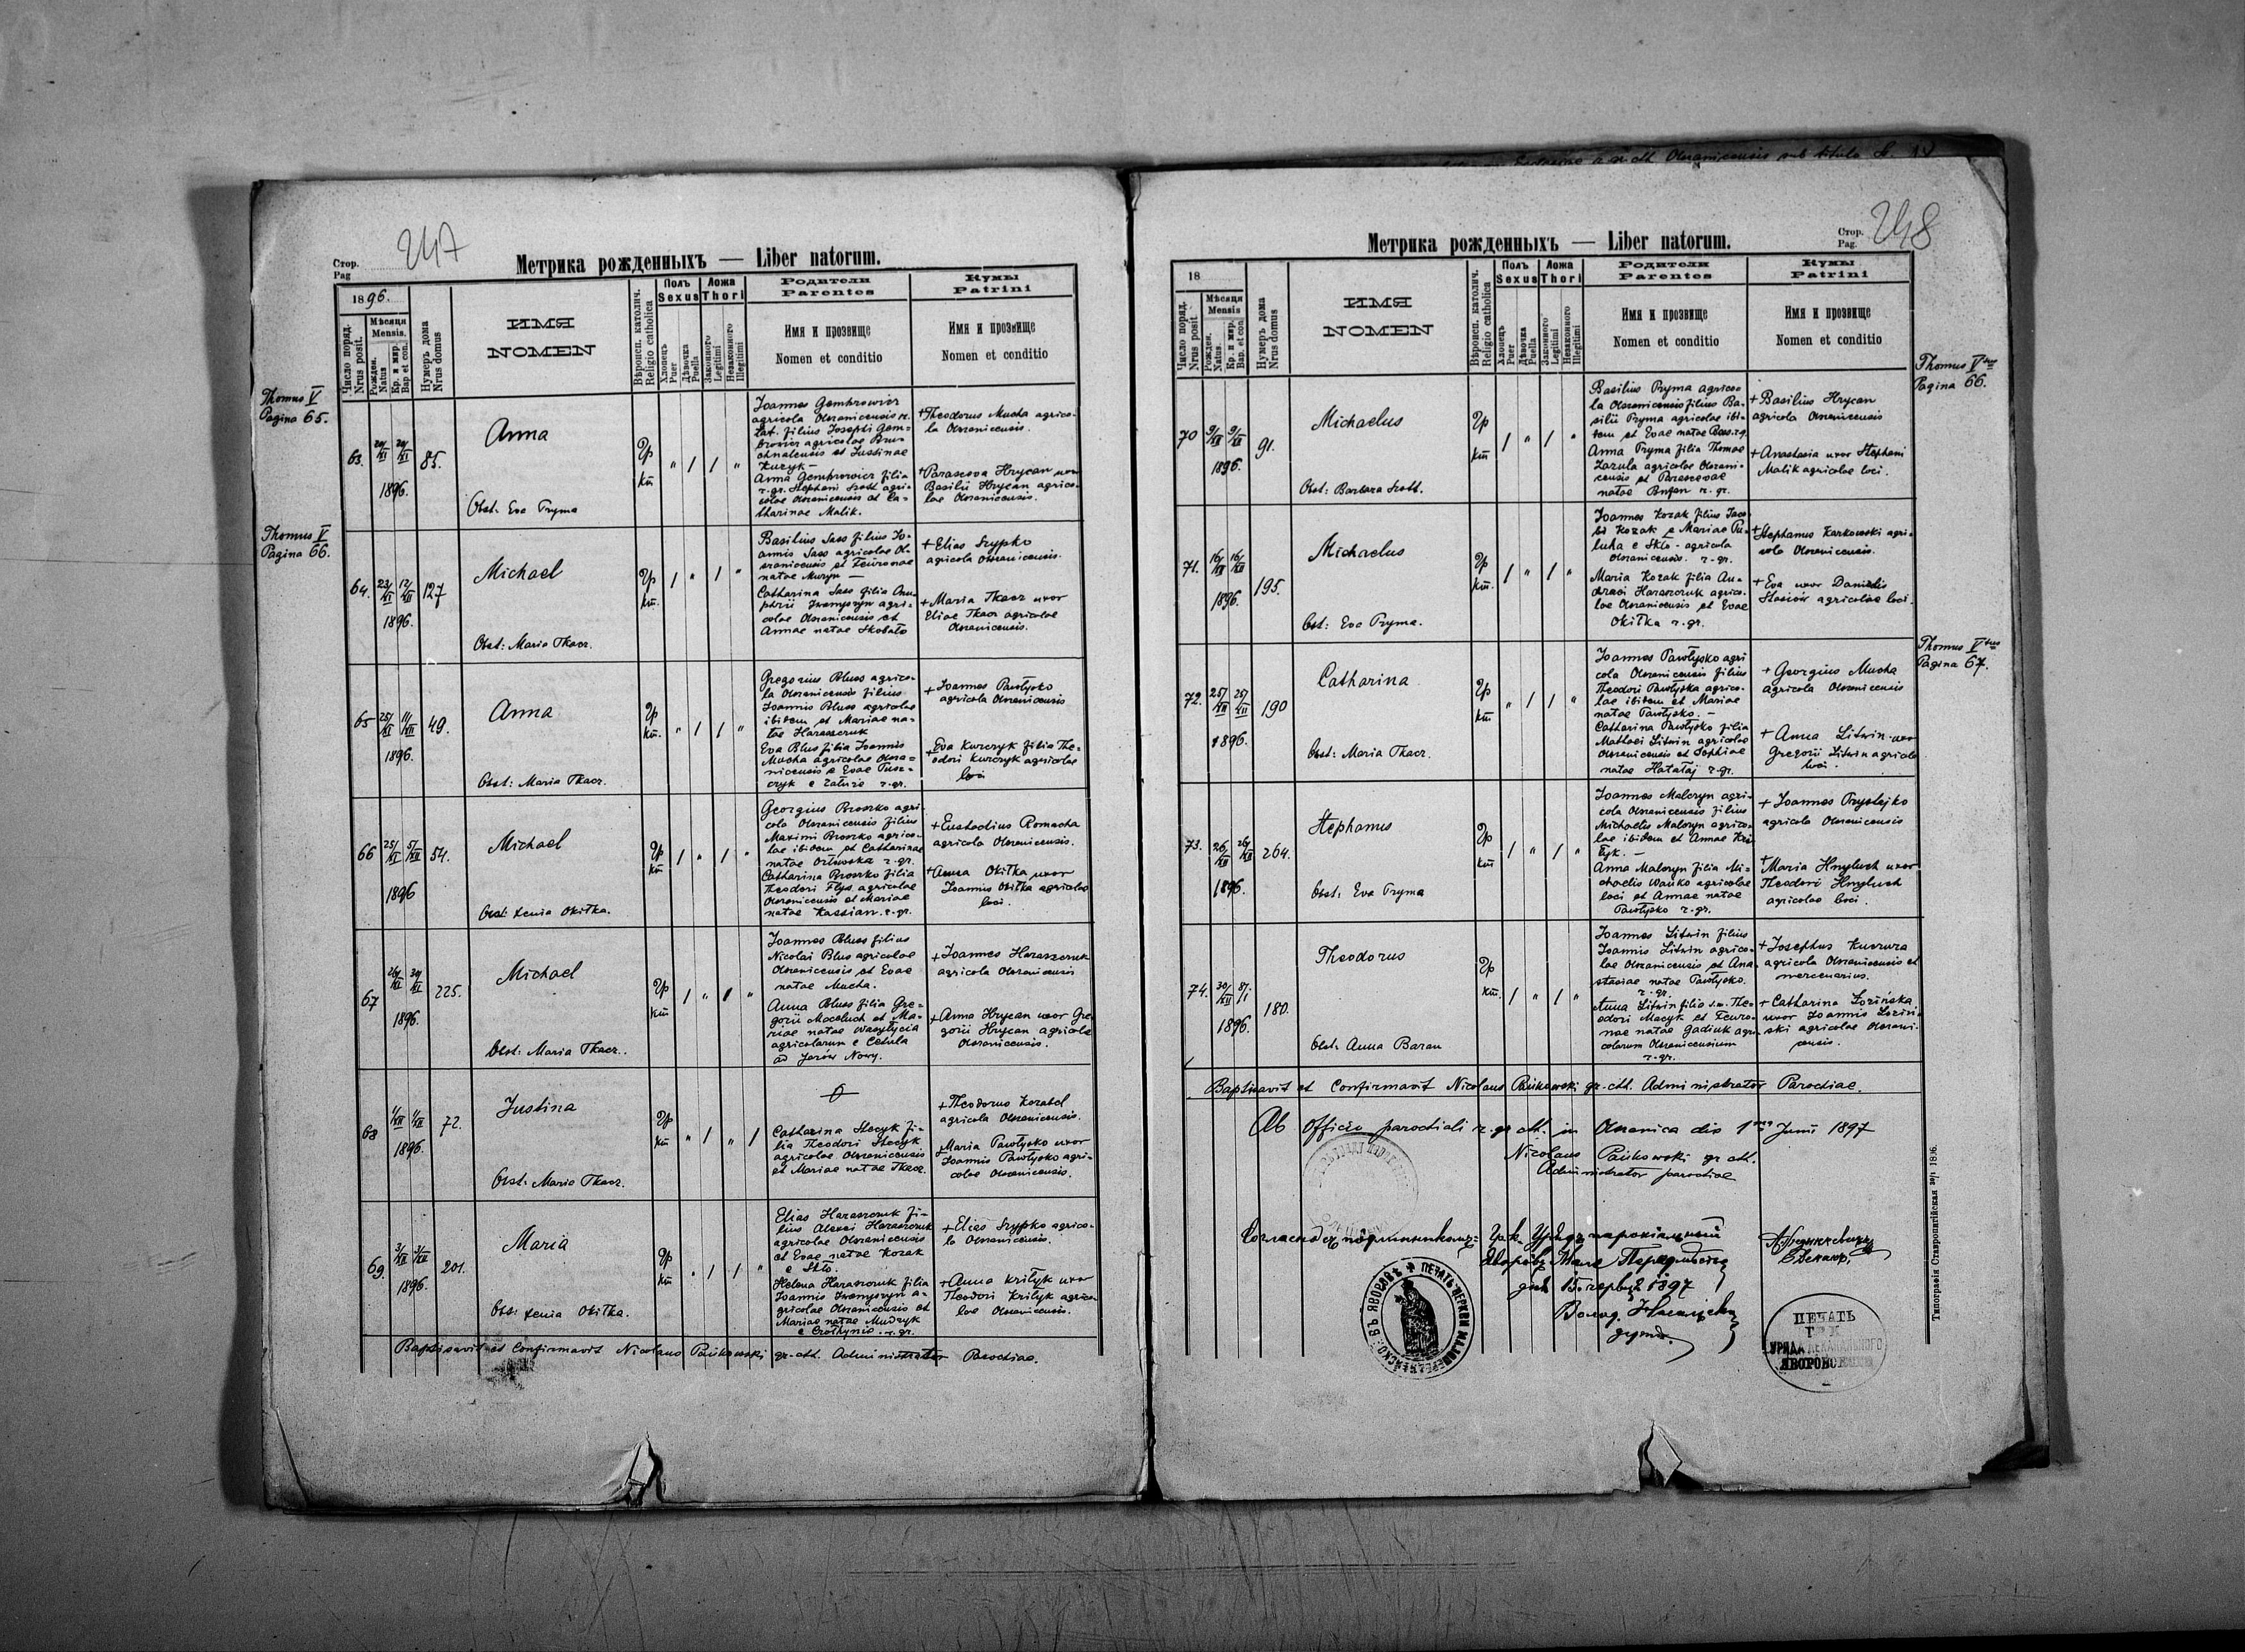 247
Стор.
Pag
Метрика рожденныхъ — Liber natorum.
1896.
Число поряд.
Nrus posit.
Мѣсяця
Mensis.
Рожден.
Natus
Кр. и мир.
Bap et con.
Нумеръ дома
Nrus domus
ИМЯ
NOMEN
Вѣроисп. католич.
Religio catholica
Полъ
Sexus
Хлопець
Puer
Дѣвочка
Puella
Ложа
Thori
Законного
Legitimi
Незаконного
Illegitimi
Родители
Parentes
Имя и прозвище
Nomen et conditio
Кумы
Patrini
Имя и прозвище
Nomen et conditio
Thomus V
Pagina 65.
63.
29/XI 29/XI
1896.
85.
Anna
Obst: Eva Pryma
Joannes Gembrowicz
agricola Olszanicensis r.
lat. filius Josephi Gem-
browicz agricolae
et Justinae
Kuzyk —
Anna Gembrowicz filia
r. gr. Stephani Szott agri-
colae Olszanicensis et Ca-
tharinae Malik.
+ Theodorus Mucha agrico-
la Olszanicensis.
+ Parasceva Hrycan uxor
Basilii Hrycan agrico-
lae Olszanicensis.
Thomus V
Pagina 66.
64.
23/XI 12/XII
1896.
127
Michael
Obst: Maria Tkacz.
Basilius Sass filius Jo-
annis Sass agricolae Ol-
szanicensis et Fevronae
natae Muzyn —
Catharina Sass filia Onu-
phrii agri-
colae Olszanicensis et
Annae natae Skobało
+ Elias Szypko
agricola Olszanicensis.
+ Maria Tkacz uxor
Eliae Tkacz agricolae
Olszanicensis.
65
25/XI 11/XII
1896.
49.
Anna
Obst: Maria Tkacz.
Gregorius Bluss agrico-
la Olszanicensis filius
Joannis Bluss agricolae
ibidem et Mariae na-
tae Haraszczuk
Eva Blus filia Joannis
Mucha agricolae Olsza-
nicensis e Evae Tusz-
czyk e Załuże r. gr.
+ Joannes Pawłysko
agricola Olszanicensis
+ Eva Kurczyk filia The-
odori Kurczyk agricolae
loci
66
25/XI 5/XII
1896
54.
Michael
Obst: Xenia Okiłka.
Georgius Broszko agri-
cola Olszanicensis filius
Maximi Broszko agrico-
lae ibidem et Catharinae
natae Ortwoska r. gr.
Catharina Broszko filia
Theodori Flys agricolae
Olszanicensis et Mariae
natae Kassian. r. gr.
+ Eustachius Romacha
agricola Olszanicensis.
+ Anna Okiłka uxor
Joannis Okiłka agricolae
loci.
67
26/XI 29/XI
1896.
225.
Michael
Obst: Maria Tkacz.
Joannes Bluss filius
Nicolai Blus agricolae
Olszanicensis et Evae
natae Mucha.
Anna Bluss filia Gre-
gorii Maceluch et Ma-
riae natae Wasylycia
agricolarum e Cetula
ad Jazów Nowy.
+ Joannes Haraszczuk
agricola Olszanicensis
+ Anna Hrycan uxor Gre
gorii Hrycan agricolae
Olszanicensis.
68
1/XII 1/XII
1896.
72.
Justina
Obst: Maria Tkacz.
Catharina Stecyk fi-
lia Theodori Stecyk
agricolae Olszanicensis
et Mariae natae Tkacz.
+ Theodorus Kozak
agricola Olszanicensis.
+ Maria Pawłysko uxor
Joannis Pawłysko agri-
colae Olszanicensis.
69.
3/XII 3/XII
1896.
201.
Maria
Obst: Xenia Okiłka.
Elias Haraszczuk fi-
lius Alexei Haraszczuk
agricolae Olszanicensis
et Evae natae Kozak
e Skło.
Helena Haraszczuk filia
Joannis a-
gricolae Olszanicensis et
Mariae natae Mudryk
r. gr.
+ Elias Szypko agrico-
la Olszanicensis.
+ Anna Kriłyk uxor
Theodori Kriłyk agrico-
lae Olszanicensis.
Baptisavit et Confirmavit Nicolaus gr. cth. Administrator Parochiae.
248
Стор.
Pag.
Метрика рожденныхъ — Liber natorum.
18
Число поряд.
Nrus posit.
Мѣсяця
Mensis
Рожден.
Natus.
Кр. и мир.
Bap. et con
Нумеръ дома
Nrus domus
ИМЯ
NOMEN
Вѣроисп. католич.
Religio catholica
Полъ
Sexus
Хлопець
Puer
Дѣвочка
Puella
Ложа
Thori
Законного
Legitimi
Незаконного
Illegitimi
Родители
Parentes
Имя и прозвище
Nomen et conditio
Кумы
Patrini
Имя и прозвище
Nomen et conditio
Thomus V
Pagina 66.
70
9/XII 9/XII
1896.
91.
Michaelus
Obst: Barbara Szott.
Basilius Pryma agrico-
la Olszanicensis filius Ba-
silii Pryma agricolae ibi-
dem et Evae natae
Anna Pryma filia Thomae
Zazula agricolae Olszani-
censis et Parascevae
natae r. gr.
+ Basilius Hrycan
agricola Olszanicensis
+ Anastasia uxor Stephani
Malik agricolae loci.
71.
16/XII 16/XII
1896.
195.
Michaelus
Obst: Eva Pryma.
Joannes Kozak filius Jaco
bi Kozak e Mariae Pu-
luha e Skło - agricola
Olszanicensis. r. gr.
Maria Kozak filia An-
dreae Haraszczuk agrico-
lae Olszanicensis et Evae
Okiłka r. gr.
+ Stephanus Karkowski agri-
cola Olszanicensis.
+ Eva uxor Danielis
agricolae loci.
Thomus V
Pagina 67.
72.
25/XII 25/XII
1896.
190
Catharina
Obst: Maria Tkacz.
Joannes Pawłysko agri
cola Olszanicensis filius
Theodori Pawłyska agrico-
lae ibidem et Mariae
natae Pawłysko. —
Catharina Pawłysko filia
Mathaei Litwin agricolae
Olszanicensis et Sophiae
natae Hatałaj r. gr.
+ Georgius Mucha
agricola Olszanicensis
+ Anna Litwin uxor
Gregorii Litwin agricolae
loci.
73.
26/XII 26/XII
1896.
264.
Stephanus
Obst: Eva Pryma
Joannes Malczyn agri-
cola Olszanicensis filius
Michaelis Malczyn agrico-
lae ibidem et Annae Kri
łyk. —
Anna Malczyn filia Mi-
chaelis Wańko agricolae
loci et Annae natae
Pawłysko r. gr.
+ Joannes Prystajko
agricola Olszanicensis
+ Maria Hnyluch uxor
Theodori Hnyluch
agricolae loci.
74.
30/XII
1896.
180.
Theodorus
Obst: Anna Baran
Joannes Litwin filius
Joannis Litwin agrico-
lae Olszanicensis et Ana-
stasiae natae Pawłysko.
r. gr.
Anna Litwin filia The-
odori Macyk et Fevro-
nae natae Gadiuk agri-
colarum Olszanicensium
r. gr.
+ Josephus Kuczura
agricola Olszanicensis et
mercenarius.
+ Catharina Łozińska
uxor Joannis Łoziń-
ski agricolae Olszani-
censis.
Baptisavit et Confirmavit Nicolaus gr. cth. Administrator Parochiae.
Ab Officio parochiali r. gr. cth. in Olszanica die 1 Junii 1897
Nicolaus gr. cth.
Administrator parochiae
1897
ПЕЧАТЬ
УРЯДА ДЕКАНАЛЬНОГО
Типографія Ставропігійская 1896.